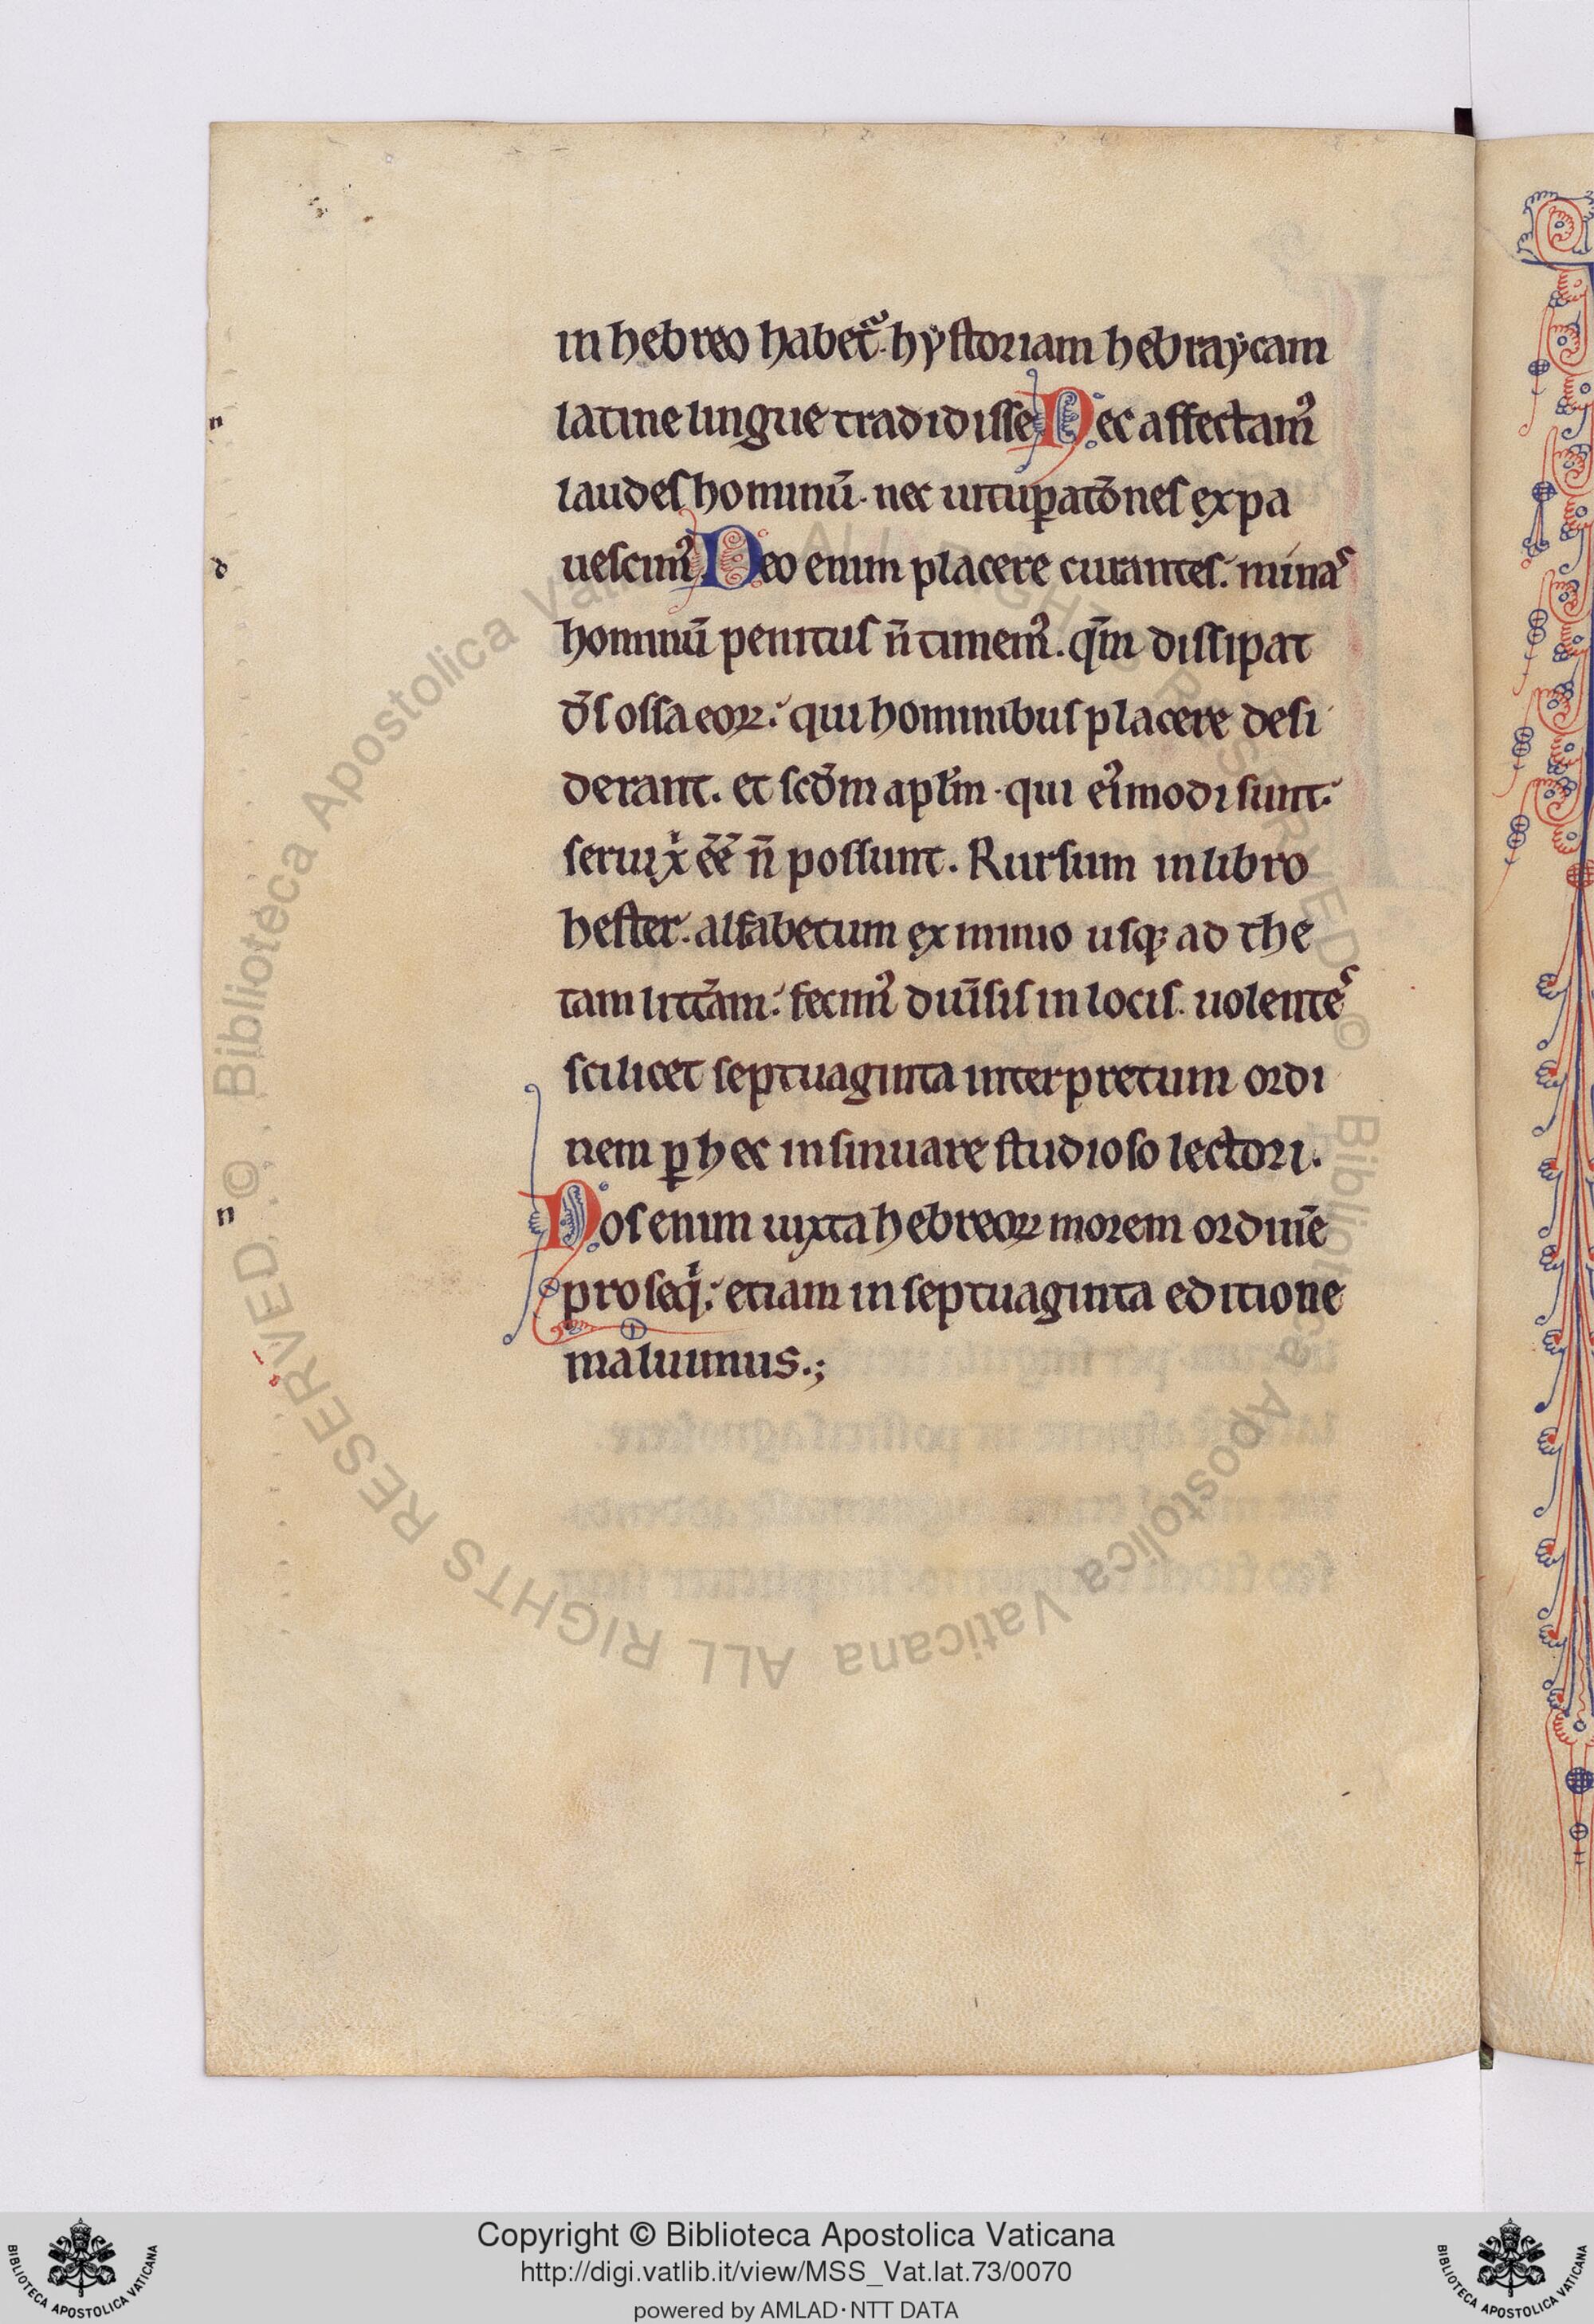 in hebreo habet᷑. hẏstoriam hebraẏcam
latine lingue tradidisse Nec affectam᾿
laudes hominū. nec uituꝑatōnes expa
uescim᾿ Deo enim placere curantes. minas
hominū penitus n̄ timem᾿. qm̄ dissipat
d̄s ossa eoꝝ. qui hominibus placere desi
derant. et scd̄m apl̄m. qui ei᾿modi sunt.
serui xͥ ēē n̄ possunt. Rursum in libro
hester. alfabetum ex minio usqꝫ ad the
tam litt̄am. fecim᾿ diu̅sis in locis. uolentes
scilicet septuaginta interpretum ordi
nem ꝑ hec insinuare studioso lectori.
Nos enim iuxta hebreoꝝ morem ordinē
proseqͥ. etiam in septuaginta editione
maluimus.;
n
d
n
Copyright © Biblioteca Apostolica Vaticana
http://digi.vatlib.it/view/MSS_Vat.lat.73/0070
powered by AMLAD·NTT DATA
BIBLIOTECA APOSTOLICA VATICANA
BIBLIOTECA APOSTOLICA VATICANA
© Biblioteca Apostolica Vaticana ALL RIGHTS RESERVED
© Biblioteca Apostolica Vaticana ALL RIGHTS RESERVED